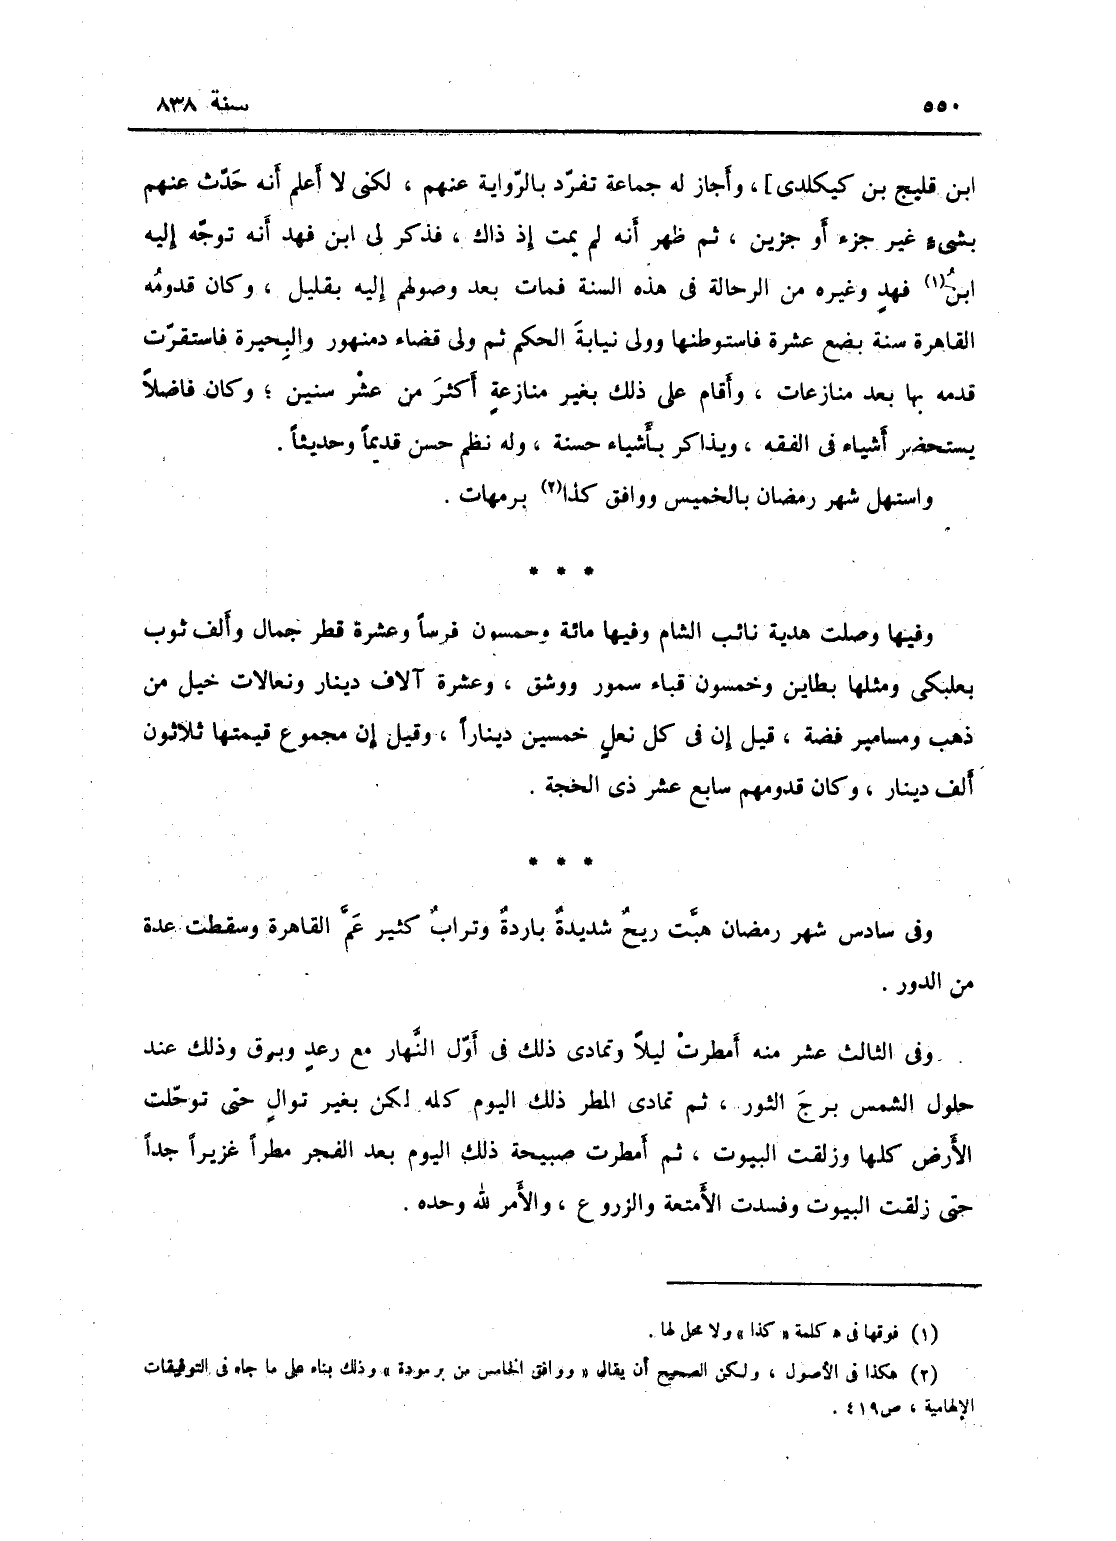 ٥٥٠
سنة ٨٣٨
ابن قليج بن كيكلدى] ، وأَجاز له جماعة تفرّد بالرّواية عنهم ، لكنى لا أَعلم أَنه حَدّث عنهم
بشىءٍ غير جزء أَو جزين ، ثم ظهر أَنه لم يمت إذ ذاك ، فذكر لى ابن فهد أَنه توجّه إليه
ابنُ(١) فهدٍ وغيره من الرحالة فى هذه السنة فمات بعد وصولهم إليه بقليل ، وكان قدومُه
القاهرة سنة بضع عشرة فاستوطنها وولى نيابةَ الحكم ثم ولى قضاء دمنهور والبِحيرة فاستقرّت
قدمه بها بعد منازعات ، وأَقام على ذلك بغير منازعةٍ أَكثرَ من عشْر سنين ؛ وكان فاضلاً
يستحضر أَشياء فى الفقه ، ويذاكر بأَشياء حسنة ، وله نظم حسن قديماً وحديثاً .
واستهل شهر رمضان بالخميس ووافق كذا(٢) برمهات .
* * *
وفيها وصلت هدية نائب الشام وفيها مائة وخمسون فرساً وعشرة قطر جمال وأَلف ثوب
بعلبكى ومثلها بطاين وخمسون قباء سمور ووشق ، وعشرة آلاف دينار ونعالات خيل من
ذهب ومسامير فضة ، قيل إن فى كل نعلٍ خمسين ديناراً ، وقيل إن مجموع قيمتها ثلاثون
أَلف دينار ، وكان قدومهم سابع عشر ذى الحجة .
* * *
وفى سادس شهر رمضان هبَّت ريحٌ شديدةٌ باردةٌ وترابٌ كثير عَمَّ القاهرة وسقطت عدة
من الدور .
وفى الثالث عشر منه أَمطرتْ ليلاً وتمادى ذلك فى أَوّل النَّهار مع رعدٍ وبرق وذلك عند
حلول الشمس برجَ الثور ، ثم تمادى المطر ذلك اليوم كله لكن بغير توالٍ حتى توحّلت
الأَرض كلها وزلقت البيوت ، ثم أَمطرت صبيحة ذلك اليوم بعد الفجر مطراً غزيراً جداً
حتى زلقت البيوت وفسدت الأَمتعة والزروع ، والأَمر لله وحده .
(١) فوقها فى ه كلمة « كذا » ولا محل لها .
(٢) هكذا فى الأصول ، ولكن الصحيح أن يقال « ووافق الخامس من برمودة » وذلك بناء على ما جاء فى التوفيقات
الإلهامية ، ص٤١٩ .